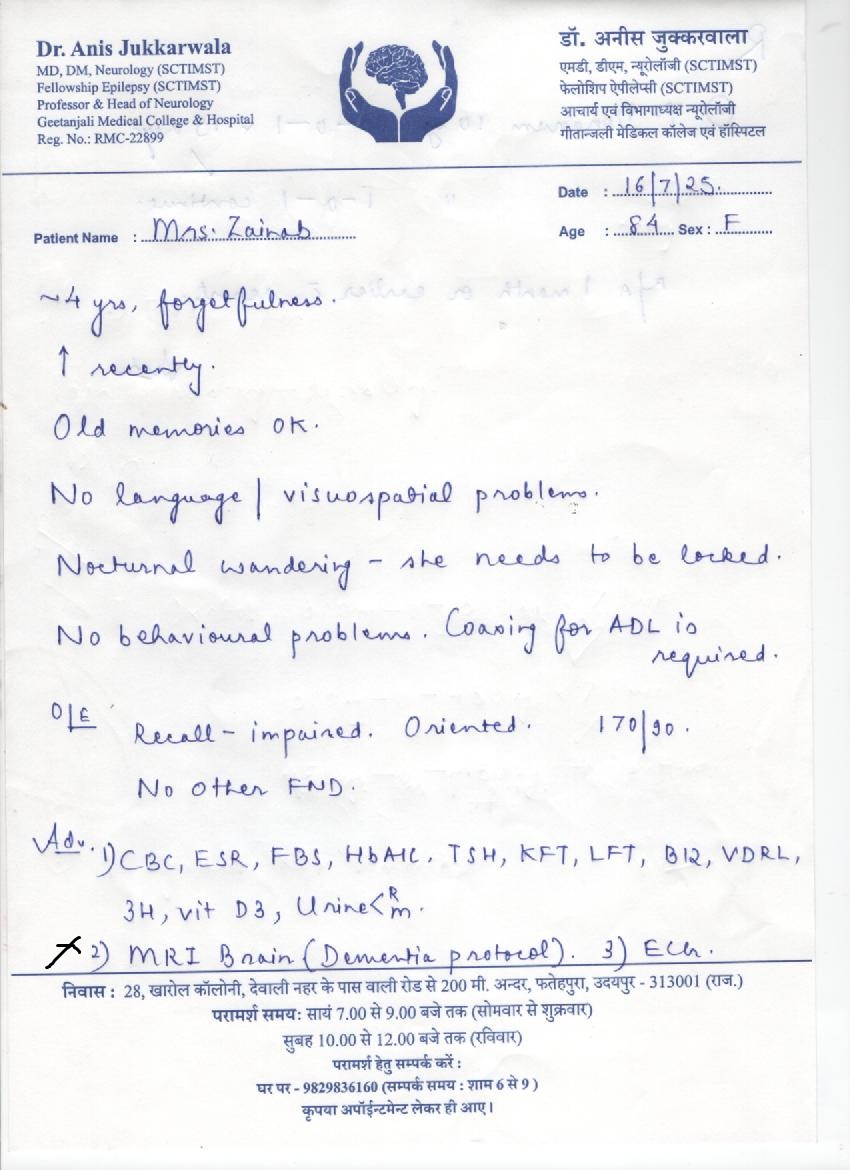 Dr. Anis Jukkarwala
MD, DM, Neurology (SCTIMST)
Fellowship Epilepsy (SCTIMST)
Professor & Head of Neurology
Geetanjali Medical College & Hospital
Reg. No.: RMC-22899
डॉ. अनीस जुक्करवाला
एमडी, डीएम, न्यूरोलॉजी (SCTIMST)
फेलोशिप ऐपीलेप्सी (SCTIMST)
आचार्य एवं विभागाध्यक्ष न्यूरोलॉजी
गीतान्जली मेडिकल कॉलेज एवं हॉस्पिटल
Date : 16/7/25.
Patient Name : Mrs. Zainab
Age : 84 Sex : F
~4 yrs, forgetfulness.
↑ recently.
Old memories OK.
No language / visuospatial problems.
Nocturnal wandering - she needs to be locked.
No behavioural problems. Coaxing for ADL is
required.
O/E Recall - impaired. Oriented. 170/90.
No Other FND.
Adv. 1) CBC, ESR, FBS, HbA1C, TSH, KFT, LFT, B12, VDRL,
3H, vit D3, Urine < R m.
2) MRI Brain (Dementia protocol). 3) ECG.
निवास : 28, खारोल कॉलोनी, देवाली नहर के पास वाली रोड से 200 मी. अन्दर, फतेहपुरा, उदयपुर - 313001 (राज.)
परामर्श समय: सायं 7.00 से 9.00 बजे तक (सोमवार से शुक्रवार)
सुबह 10.00 से 12.00 बजे तक (रविवार)
परामर्श हेतु सम्पर्क करें :
घर पर - 9829836160 (सम्पर्क समय : शाम 6 से 9 )
कृपया अपॉईन्टमेन्ट लेकर ही आए।